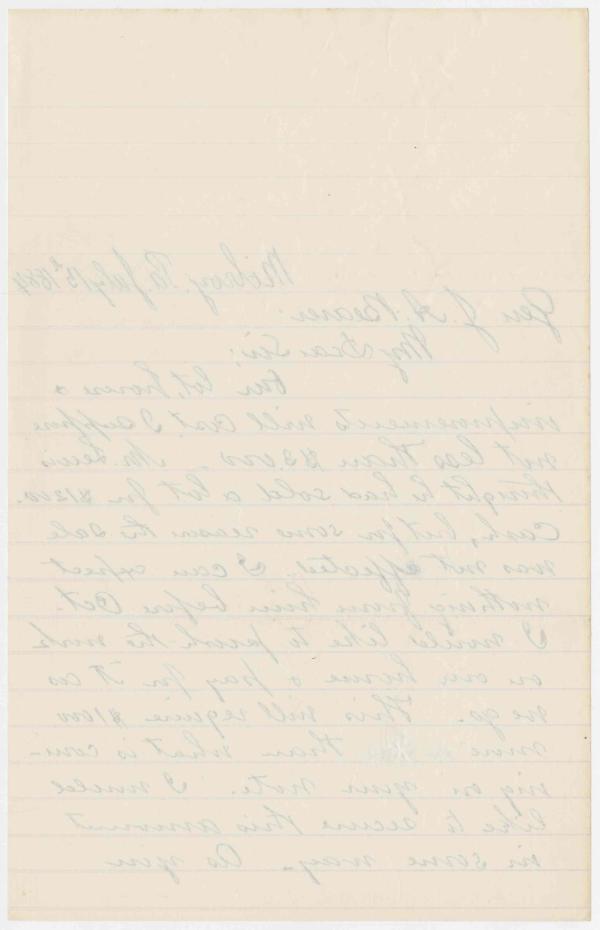 Milroy, Pa. July 15th 1884
Gen J. A. Beaver:
My Dear Sir;
Our lot, house &
improvements will cost I suppose
not less than $3000. Mr. Lewis
thought he had sold a lot for $1200.
Cash, but for some reason the sale
was not effected. I can expect
nothing from him before Oct.
I would like to push the work
on our house & pay for it as
we go. This will require $1000
more than what is com-
ing on your note. I would
like to secure this amount
in some way. As you